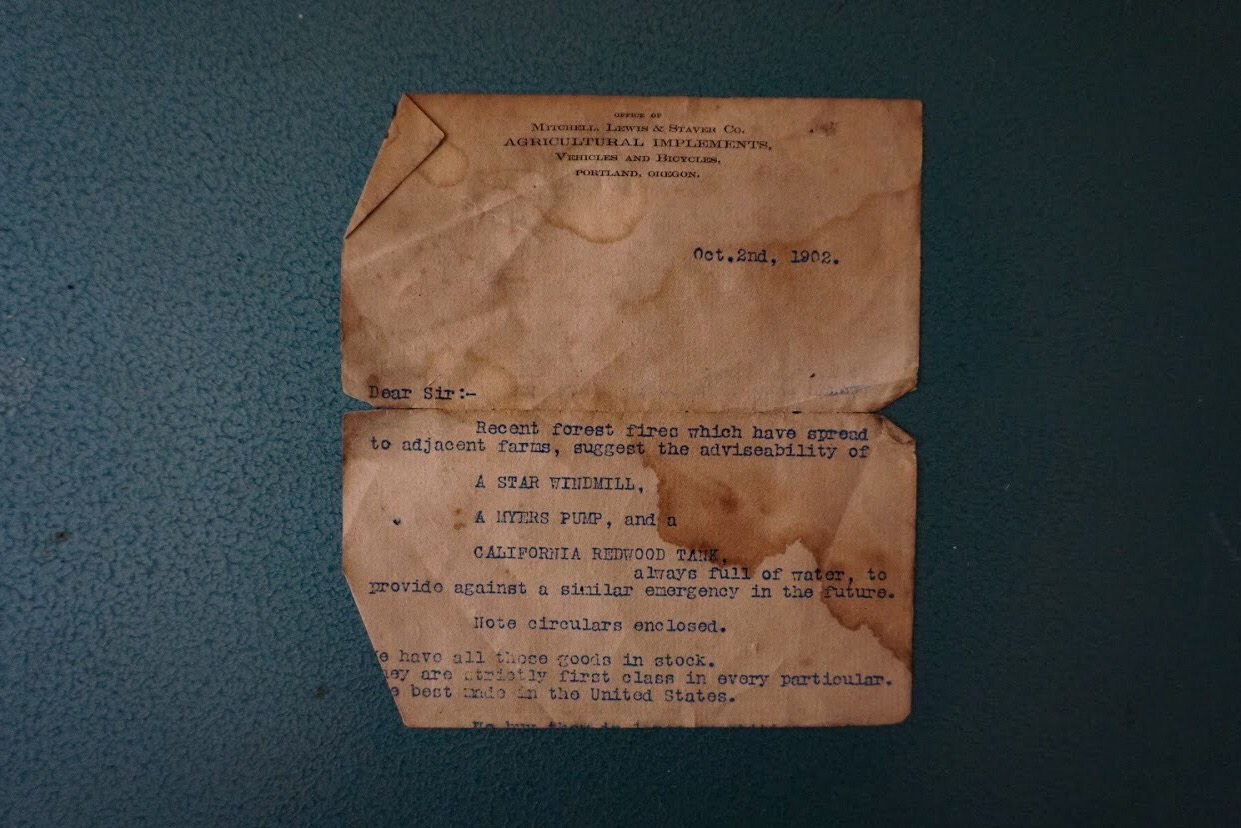 OFFICE OF
MITCHELL, LEWIS & STAVER CO.
AGRICULTURAL IMPLEMENTS,
VEHICLES AND BICYCLES,
PORTLAND, OREGON.
Oct.2nd, 1902.
Dear Sir:-
Recent forest fires which have spread
to adjacent farms, suggest the adviseability of
A STAR WINDMILL,
A MYERS PUMP, and a
CALIFORNIA REDWOOD TANK,
always full of water, to
provide against a similar emergency in the future.
Note circulars enclosed.
e have all these goods in stock.
ey are strictly first class in every particular.
e best made in the United States.
We buy them in